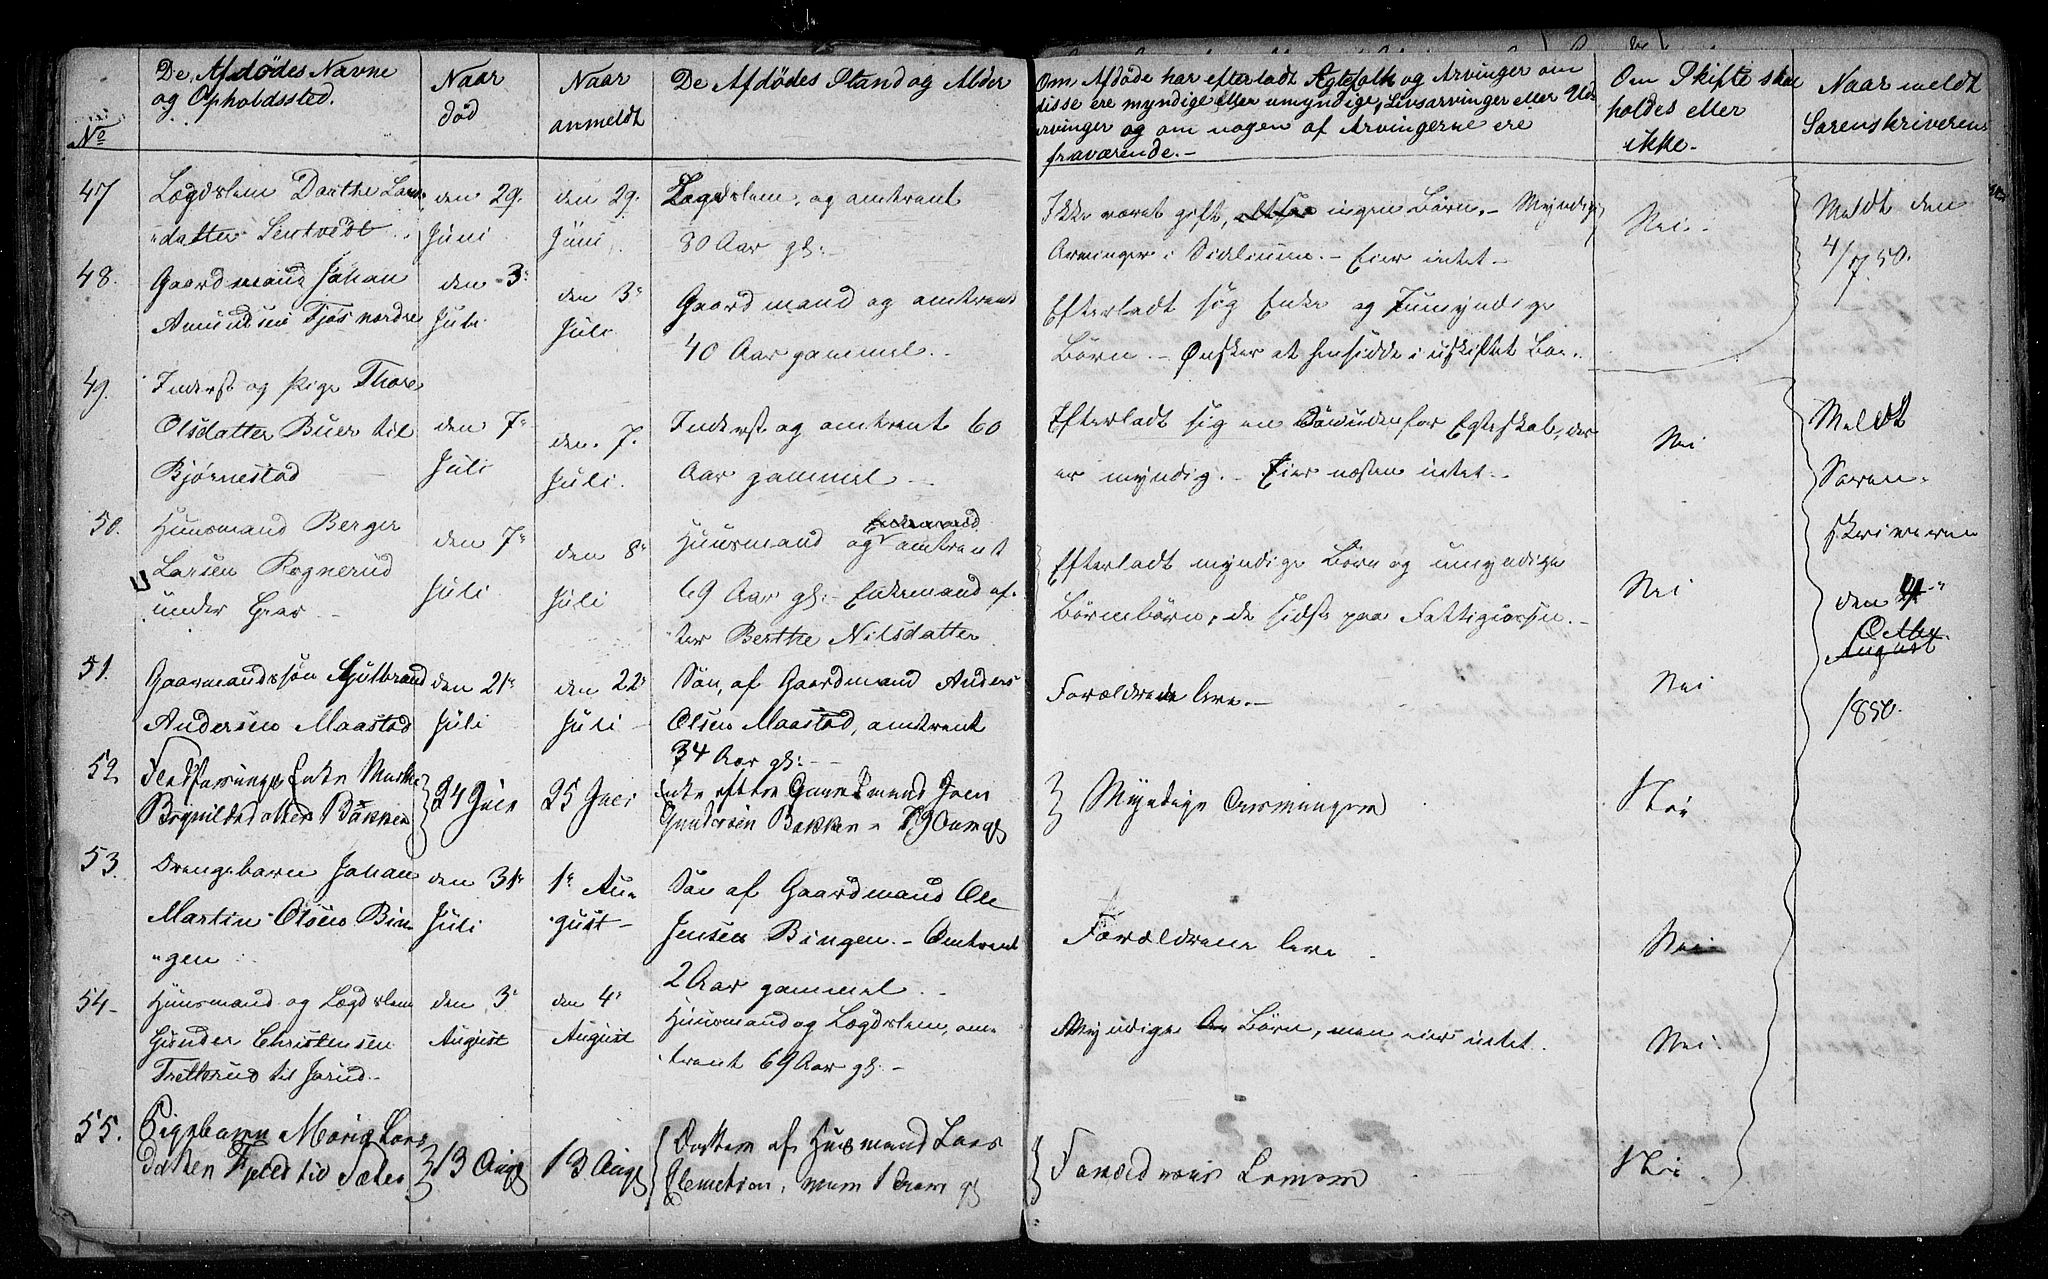 No
De Afdødes Navne
og Opholdssted.
Naar
død
Naar
anmeldt
De Afdødes Stand og Alder
Om Afdøde har efterladt Ægtefolk og Arvinger om
disse ere myndige eller umyndige, Livsarvinger eller Ud-
arvinger og om nogen af Arvingerne ere
fraværende.-
Om Skifte skal
holdes eller
ikke.
Naar meldt
Sorenskriveren
47
Lægdslem Dorthe Lars
"datter Sentvedt
den 29.
Juni
den 29.
Juni
Lægdslem, og omtrent
80 Aar gl:
Ikke været gift, altsaa ingen Børn. - Myndige
Arvinger i Sidelinie. - Eier intet -
Nei.
Meldt den
4/7 50.
48.
Gaardmand Johan
Amundsen Fjøs nordre
den 3'
Juli
den 3'
Juli
Gaardmand og omtrent
40 Aar gammel.
Efterladt sig Enke og umyndige
Børn. - Ønsker at hensidde i uskiftet Boe.
49.
Inderst og Pige Thore
Olsdatter Buer til
Bjørnestad
den 7'
Juli
den 7.
Juli.
Inderst og omtrent 60
Aar gammel
Efterladt sig en udenfor Egteskab, der
er myndig. - Eier næsten intet.
Nei
Meldt
Soren-
skriveren
den 4"
Octbr.
August
1850.
50.
Huusmand Berger
Larsen Rognerud
under
den 7'
Juli
den 8'
Juli
Enkemand
Huusmand og omtrent
69 Aar gl: - Enkemand ef-
ter Berthe Nilsdatter
Efterladt myndige Børn og umyndige
Børnebørn, de sidste paa Fattigkassen.
Nei
51.
Gaarmandssøn Gjulbrand
Andersen Maastad
den 21'
Juli
den 22'
Juli
Søn, af Gaardmand Anders
Olsen Maastad, omtrent
34 Aar gl:
Forældrene leve. -
Nei
52
Enke Marthe
Bognildsdatter Bakken
24 Juli
25 Juli
Enke efter Gaardmand Joen
Gundersen Bakken - 79 aar gl
Myndige Arvinger
Nei
53.
Drengebarn Johan
Martin Olsen Bin
"gen
den 31'
Juli
1' Au-
gust -
Søn af Gaardmand Ole
Jensen Bingen. - Omtrent
2 Aar gammel
Forældrene leve
Nei
54-
Huusmand og Lægdslem
Gunder Christensen
Tretterud til Jarud.
den 3'
August
den 4'
August
Huusmand og Lægdslem, om-
trent 69 Aar gl. -
Myndige Børn, men eier intet.
Nei.
55.
Pigebarn Maria Lars
datter Fjeld til Sæter
13 Aug
13 Aug
Datter af Husmand Lars
Clemetsen, 1 Aar gl
Nei